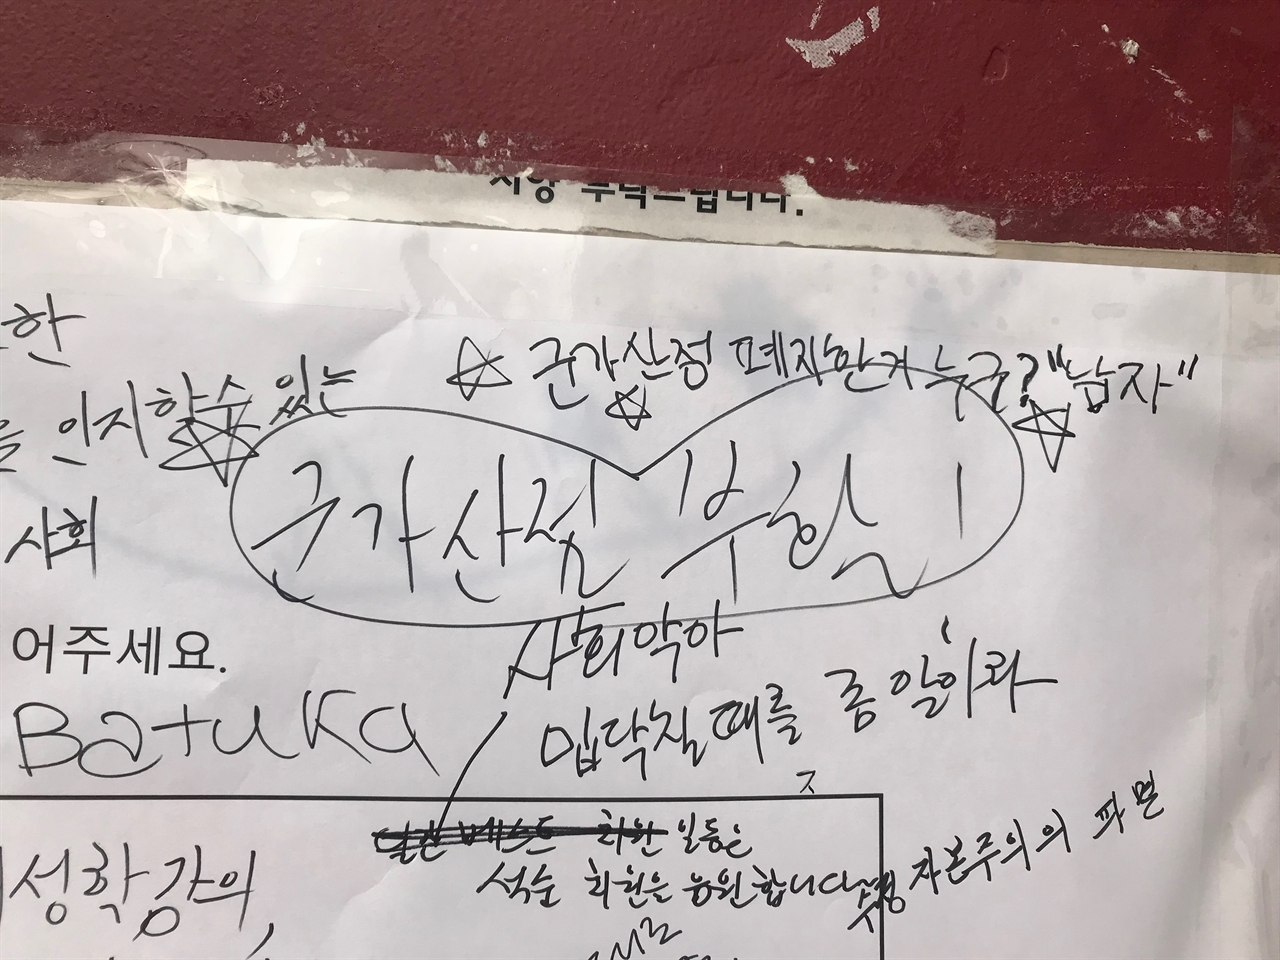 지양 부탁드립니다.
한
☆ 군가산점 폐지한거 누구? "남자"
를 인지할수 있는
군가산점 부활!
사회
사회악아
어주세요.
입닥칠때를 좀 알아와
Batuka
일간베스트 회원 일동은
석순 회원을 응원합니다
자본주의의 파멸
성학강의,